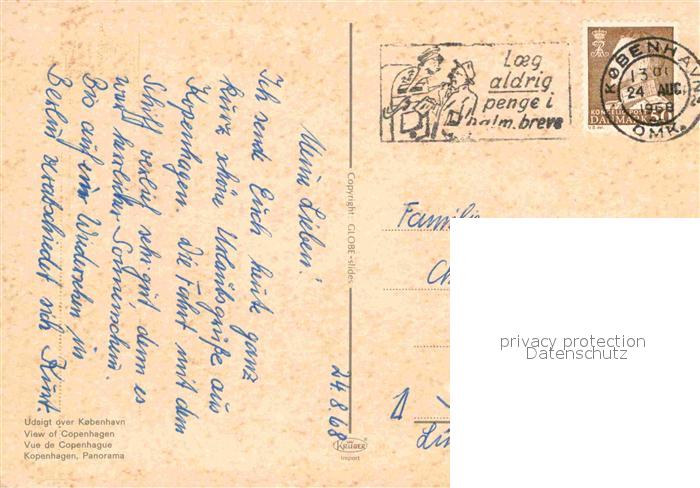 Meine Lieben!
Ich sende Euch heute ganz
kurz schöne Urlaubsgrüße aus
Kopenhagen. Die Fahrt mit dem
Schiff verlief sehr gut, denn es
war herrlicher Sonnenschein.
Bis auf ein Wiedersehen in
Berlin verabschiedet sich Kurt.
24.8.68
Udsigt over København
View of Copenhagen
Vue de Copenhague
Kopenhagen, Panorama
Copyright: GLOBE-slides
KRÜGER
Import
Læg
aldrig
penge i
alm. breve
KØBENHAVN
24 AUG.
1968
OMK.
DANMARK
Familie
privacy protection
Datenschutz